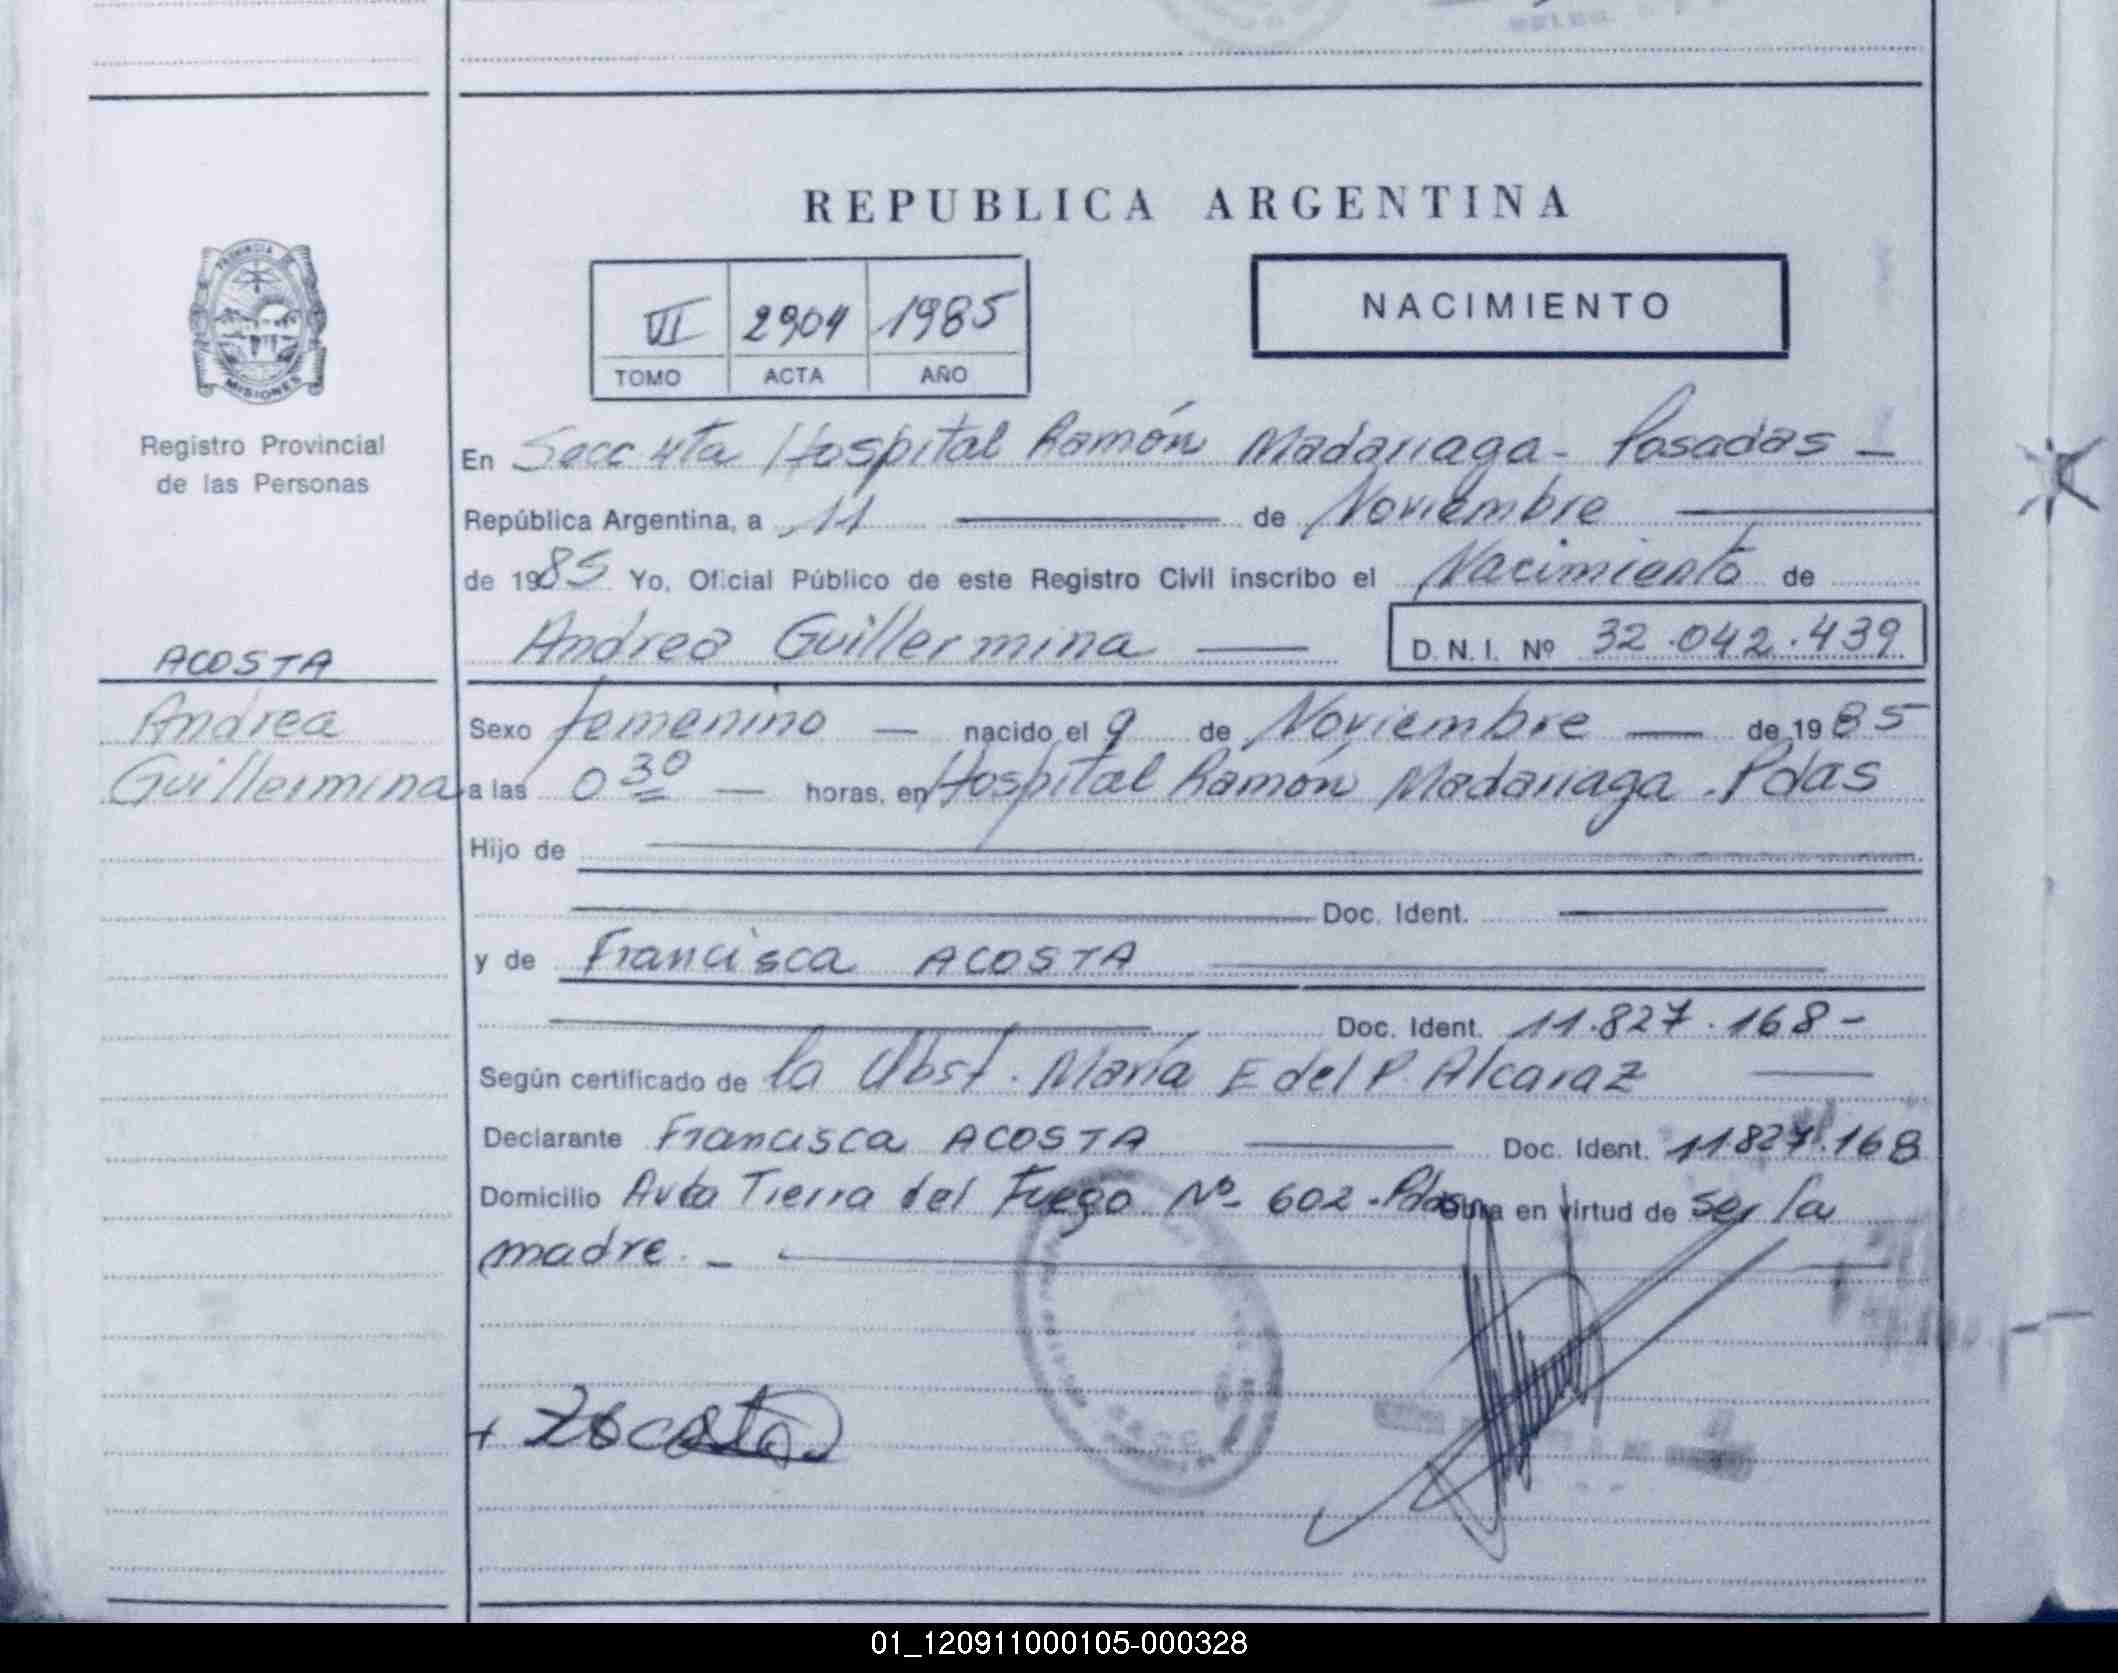 REPUBLICA ARGENTINA
PROVINCIA DE
MISIONES
Registro Provincial
de las Personas
VI 2904 1985
TOMO ACTA AÑO
NACIMIENTO
En Secc 4ta Hospital Ramón Madariaga - Posadas -
República Argentina, a 11 de Noviembre
de 1985 Yo, Oficial Público de este Registro Civil inscribo el Nacimiento de
Andrea Guillermina D.N.I. Nº 32.042.439
ACOSTA
Andrea
Guillermina
Sexo femenino - nacido el 9 de Noviembre de 1985
a las 0 30 - horas, en Hospital Ramón Madariaga . Pdas
Hijo de
Doc. Ident.
y de Francisca ACOSTA
Doc. Ident. 11.827.168-
Según certificado de la Obst. María E del P. Alcaraz
Declarante Francisca ACOSTA Doc. Ident. 11.827.168
Domicilio Avda Tierra del Fuego Nº 602 - Pdas Obra en virtud de ser la
madre. -
01_120911000105-000328